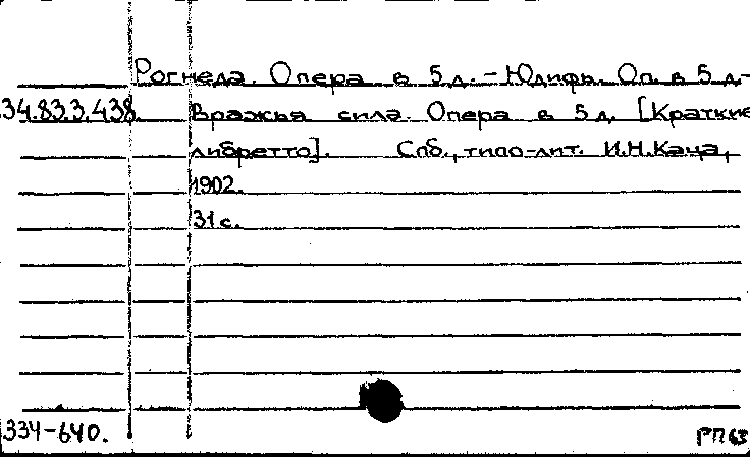 Рогнеда. Опера в 5 д. - Юдифь. Оп. в 5 д.-
34.83.3.438. Вражья сила. Опера в 5 д. [Краткие
либретто]. Спб., типо-лит. И.Н.Каца,
1902.
31 с.
334-640. РП 63